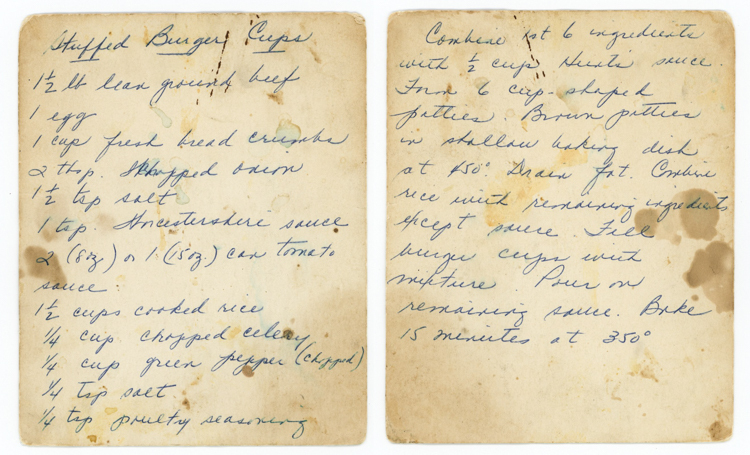 Stuffed Burger Cups
1 1/2 lb lean ground beef
1 egg
1 cup fresh bread crumbs
2 tbsp. chopped onion
1 1/2 tsp salt
1 tsp. Worcestershire sauce
2 (8oz) or 1 (15oz.) can tomato
sauce
1 1/2 cups cooked rice
1/4 cup chopped celery
1/4 cup green pepper (chopped)
1/4 tsp salt
1/4 tsp poultry seasoning
Combine 1st 6 ingredients
with 1/2 cup Hunts sauce.
Form 6 cup-shaped
patties Brown patties
in shallow baking dish
at 450° Drain fat. Combine
rice with remaining ingredients
except sauce. Fill
burger cups with
mixture Pour on
remaining sauce. Bake
15 minutes at 350°